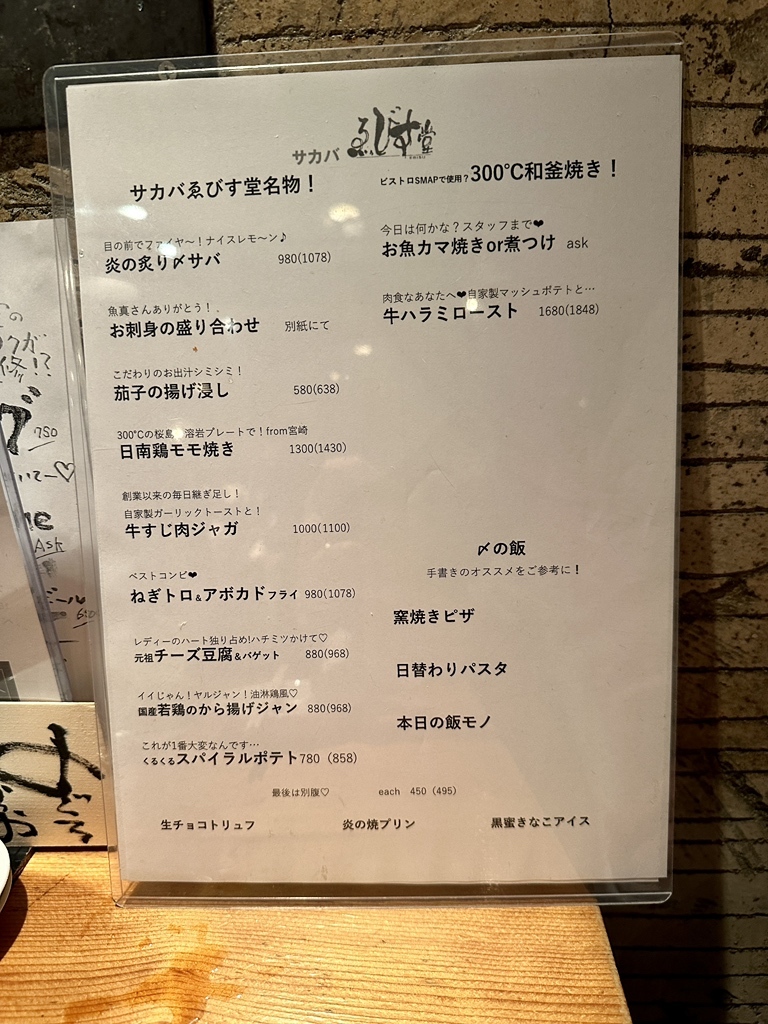 サカバ ゑびす堂
サカバゑびす堂名物！
目の前でファイヤ〜！ナイスレモ〜ン♪
炎の炙り〆サバ 980(1078)
魚真さんありがとう！
お刺身の盛り合わせ 別紙にて
こだわりのお出汁シミシミ！
茄子の揚げ浸し 580(638)
300℃の桜島溶岩プレートで！from宮崎
日南鶏モモ焼き 1300(1430)
創業以来の毎日継ぎ足し！
自家製ガーリックトーストと！
牛すじ肉ジャガ 1000(1100)
ベストコンビ❤
ねぎトロ&アボカドフライ 980(1078)
レディーのハート独り占め!ハチミツかけて♡
元祖チーズ豆腐&バゲット 880(968)
イイじゃん！ヤルジャン！油淋鶏風♡
国産若鶏のから揚げジャン 880(968)
これが1番大変なんです…
くるくるスパイラルポテト780（858）
ビストロSMAPで使用？300℃和釜焼き！
今日は何かな？スタッフまで❤
お魚カマ焼きor煮つけ ask
肉食なあなたへ❤自家製マッシュポテトと…
牛ハラミロースト 1680(1848)
〆の飯
手書きのオススメをご参考に！
窯焼きピザ
日替わりパスタ
本日の飯モノ
最後は別腹♡ each 450（495）
生チョコトリュフ 炎の焼プリン 黒蜜きなこアイス
750
ASK